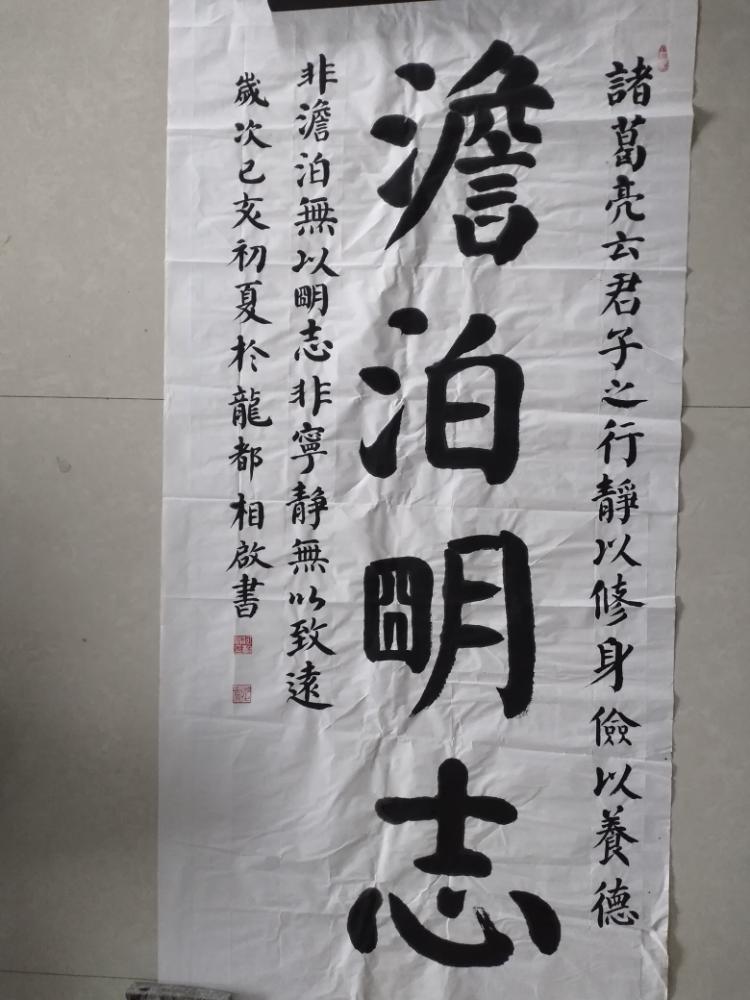 諸葛亮云君子之行靜以修身儉以養德
澹泊明志
非澹泊無以明志非寧靜無以致遠
歲次己亥初夏於龍都相啟書